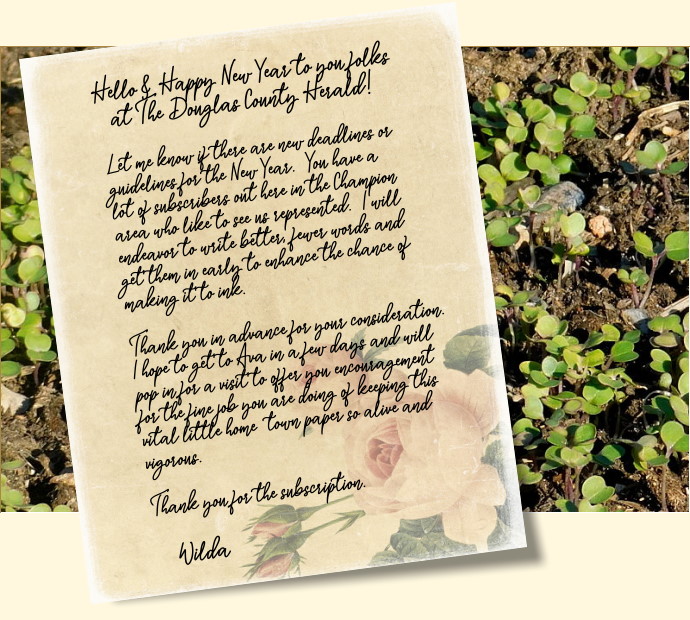 Hello & Happy New Year to you folks
at The Douglas County Herald!
Let me know if there are new deadlines or
guidelines for the New Year. You have a
lot of subscribers out here in the Champion
area who like to see us represented. I will
endeavor to write better, fewer words and
get them in early to enhance the chance of
making it to ink.
Thank you in advance for your consideration.
I hope to get to Ava in a few days and will
pop in for a visit to offer you encouragement
for the fine job you are doing of keeping this
vital little home town paper so alive and
vigorous.
Thank you for the subscription.
Wilda